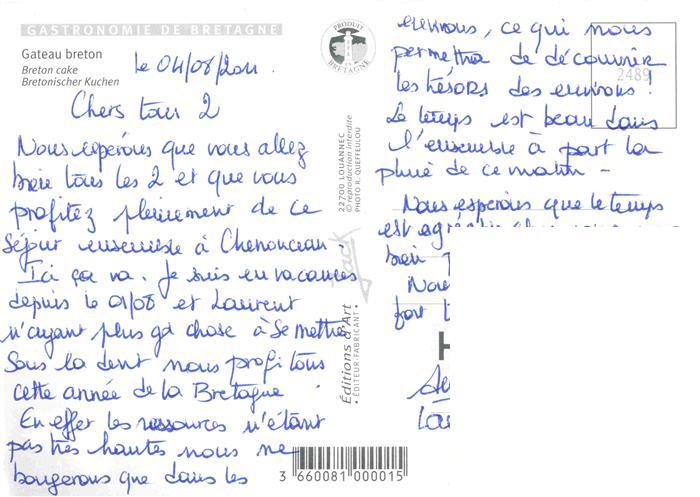 GASTRONOMIE DE BRETAGNE
Gateau breton
Breton cake
Bretonischer Kuchen
le 04/08/2011.
Chers tous 2
Nous espérons que vous allez
bien tous les 2 et que vous
profitez pleinement de ce
séjour ensemble à Chenonceau.
Ici ça va. Je suis en vacances
depuis le 01/08 et Laurent
n'ayant plus gd chose à se mettre
sous la dent nous profitons
cette année de la Bretagne.
En effet les ressources n'étant
pas très hautes nous ne
bougerons que dans les
PRODUIT EN BRETAGNE
22700 LOUANNEC
© reproduction interdite
PHOTO R. QUEFFEULOU
Jack
Editions d'Art
• ÉDITEUR-FABRICANT •
3 660081 000015
environs, ce qui nous
permettra de découvrir
les trésors des environs !
2489
Le temps est beau dans
l'ensemble à part la
pluie de ce matin -
Nous espérons que le temps
est
bien
Nous
fort
H